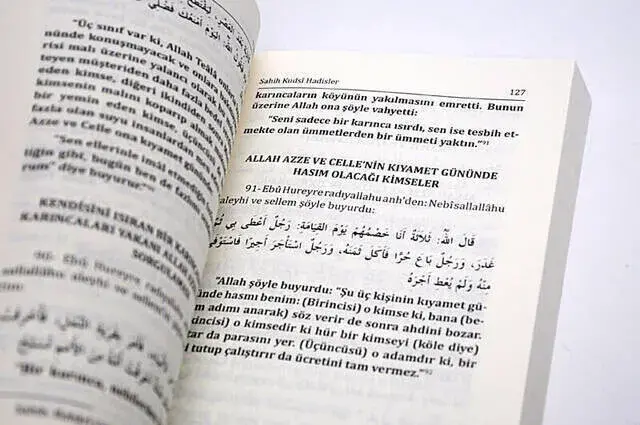 "Üç sınıf var ki, Allah Teâlâ
nünde konuşmayacak ve onlara
risi malı üzerine yalancı olarak
teyen müşteriden daha fazla bedel
eden kimse, diğeri ikindiden son
kimsenin malını koparıp almak
bir yemin eden kimse, üçüncüsü
fazla olan suyu insanlardan men
Azze ve Celle ona kıyamet günü
"Sen ellerinle imâl etmediğin
liğin gibi, bugün ben de fazlım
rum" diye buyurur."
KENDİSİNİ ISIRAN BİR KARINCA
KARINCALARI YAKANI ALLAH
SORGULAM
90- Ebû Hureyre radıyallahu
Sahih Kudsî Hadisler
127
karıncaların köyünün yakılmasını emretti. Bunun
üzerine Allah ona şöyle vahyetti:
"Seni sadece bir karınca ısırdı, sen ise tesbih et-
mekte olan ümmetlerden bir ümmeti yaktın."91
ALLAH AZZE VE CELLE'NİN KIYAMET GÜNÜNDE
HASIM OLACAĞI KİMSELER
91- Ebû Hureyre radıyallahu anh'den: Nebî sallallâhu
aleyhi ve sellem şöyle buyurdu:
قَالَ اللهُ: ثَلَاثَةٌ أَنَا خَصْمُهُمْ يَوْمَ الْقِيَامَةِ: رَجُلٌ أَعْطَى بِي ثُمَّ
غَدَرَ، وَرَجُلٌ بَاعَ حُرًّا فَأَكَلَ ثَمَنَهُ، وَرَجُلٌ اسْتَأْجَرَ أَجِيرًا فَاسْتَوْفَى
مِنْهُ وَلَمْ يُعْطِ أَجْرَهُ
"Allah şöyle buyurdu: "Şu üç kişinin kıyamet gü-
ünde hasmı benim: (Birincisi) o kimse ki, bana (be-
m adımı anarak) söz verir de sonra ahdini bozar.
incisi) o kimsedir ki hür bir kimseyi (köle diye)
tar da parasını yer. (Üçüncüsü) o adamdır ki, bir
i tutup çalıştırır da ücretini tam vermez."92